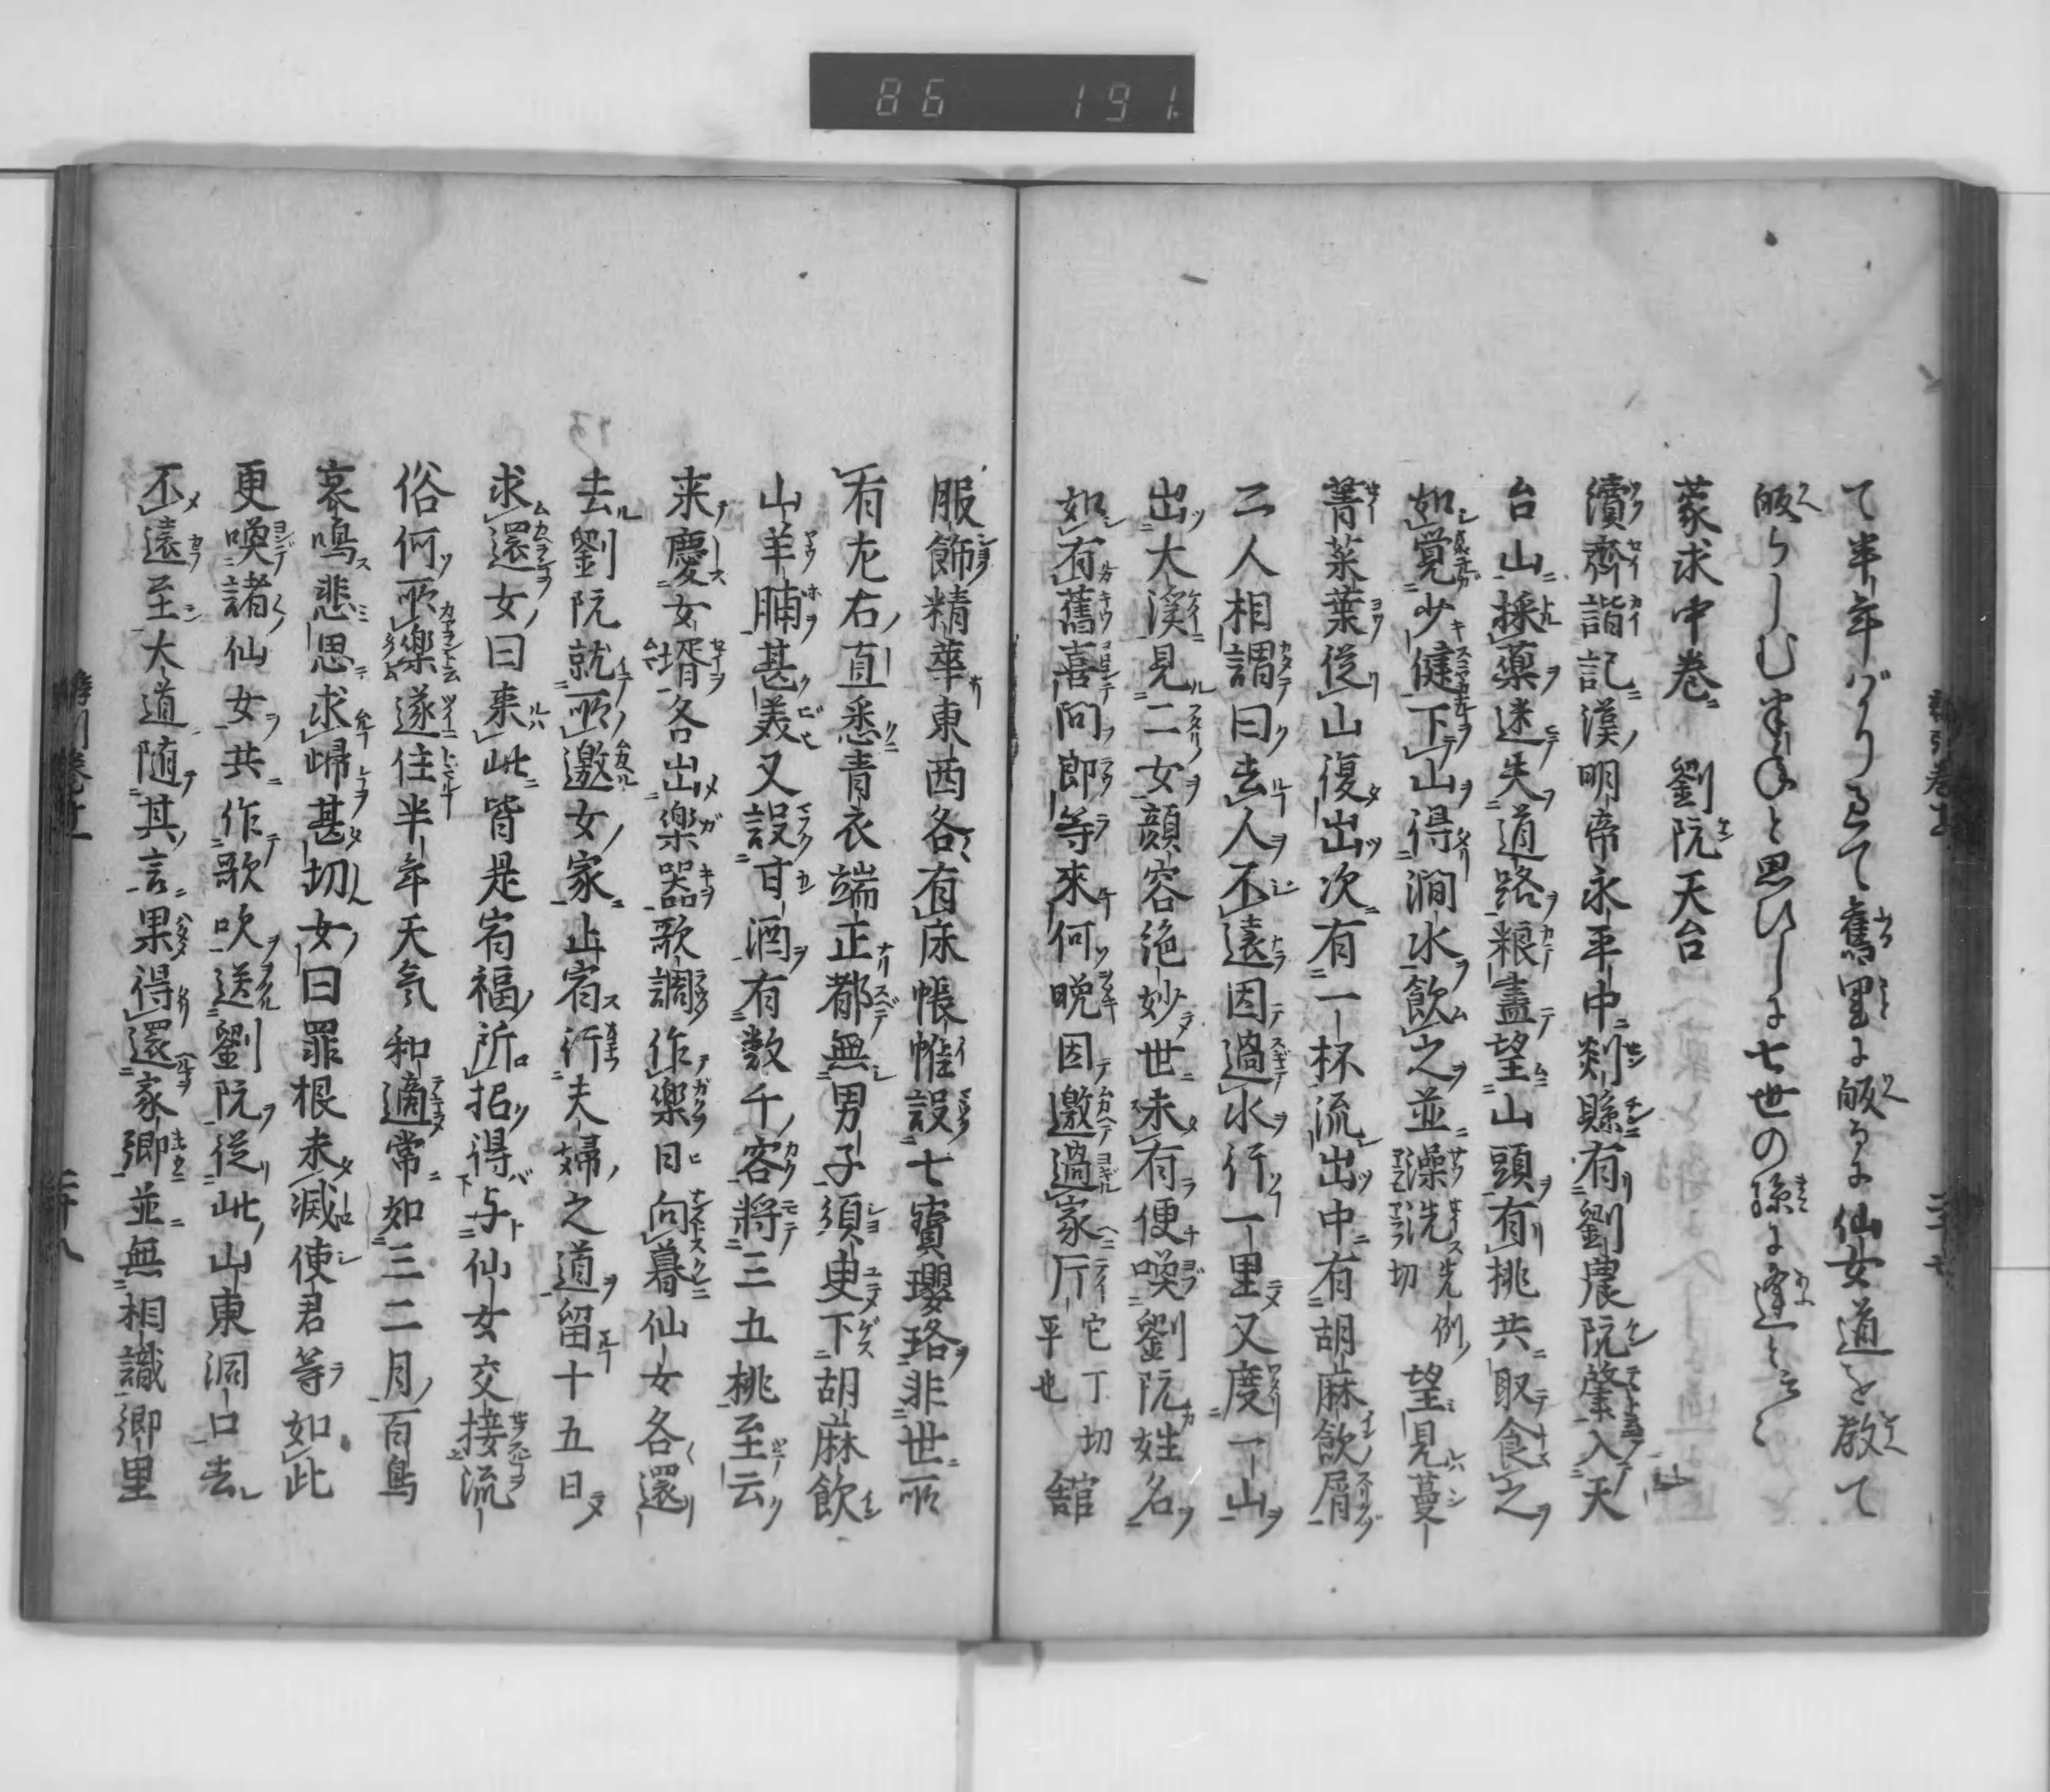 86 191
て半年ばかりありて舊里に皈るに仙女道を教て
皈らしむ半年と思ひしに七世の孫に逢と云〻
蒙求中巻 劉阮天台
續齊諧記漢明帝永平中剡縣有劉晨阮肇入天
台山採藥迷失道路粮盡望山頭有桃共取食之
如覺少健下山得澗水飲之並澡洗望見蔓
菁菜葉従山復出次有一杯流出中有胡麻飲屑
二人相謂曰去人不遠因過水行一里又度一山
出大溪見二女顔容絶妙世未有便喚劉阮姓名
如有舊喜問郎等來何晩因邀過家厅它丁切平也舘
服飾精華東西各有床帳帷設七寳瓔珞非世所
有左右直悉青衣端正都無男子須臾下胡麻飲
山羊脯甚美又設甘酒有数千客将三五桃至云
来慶女壻各出楽器歌調作樂日向暮仙女各還
去劉阮就所邀女家止宿行夫婦之道留十五日
求還女曰来此皆是宿福所招得与仙女交接流
俗何所樂遂住半年天氣和適常如三二月百鳥
哀鳴悲思求帰甚切女曰罪根未滅使君等如此
更喚諸仙女共作歌吹送劉阮従此山東洞口去
不遠至大道随其言果得還家郷並無相識郷里